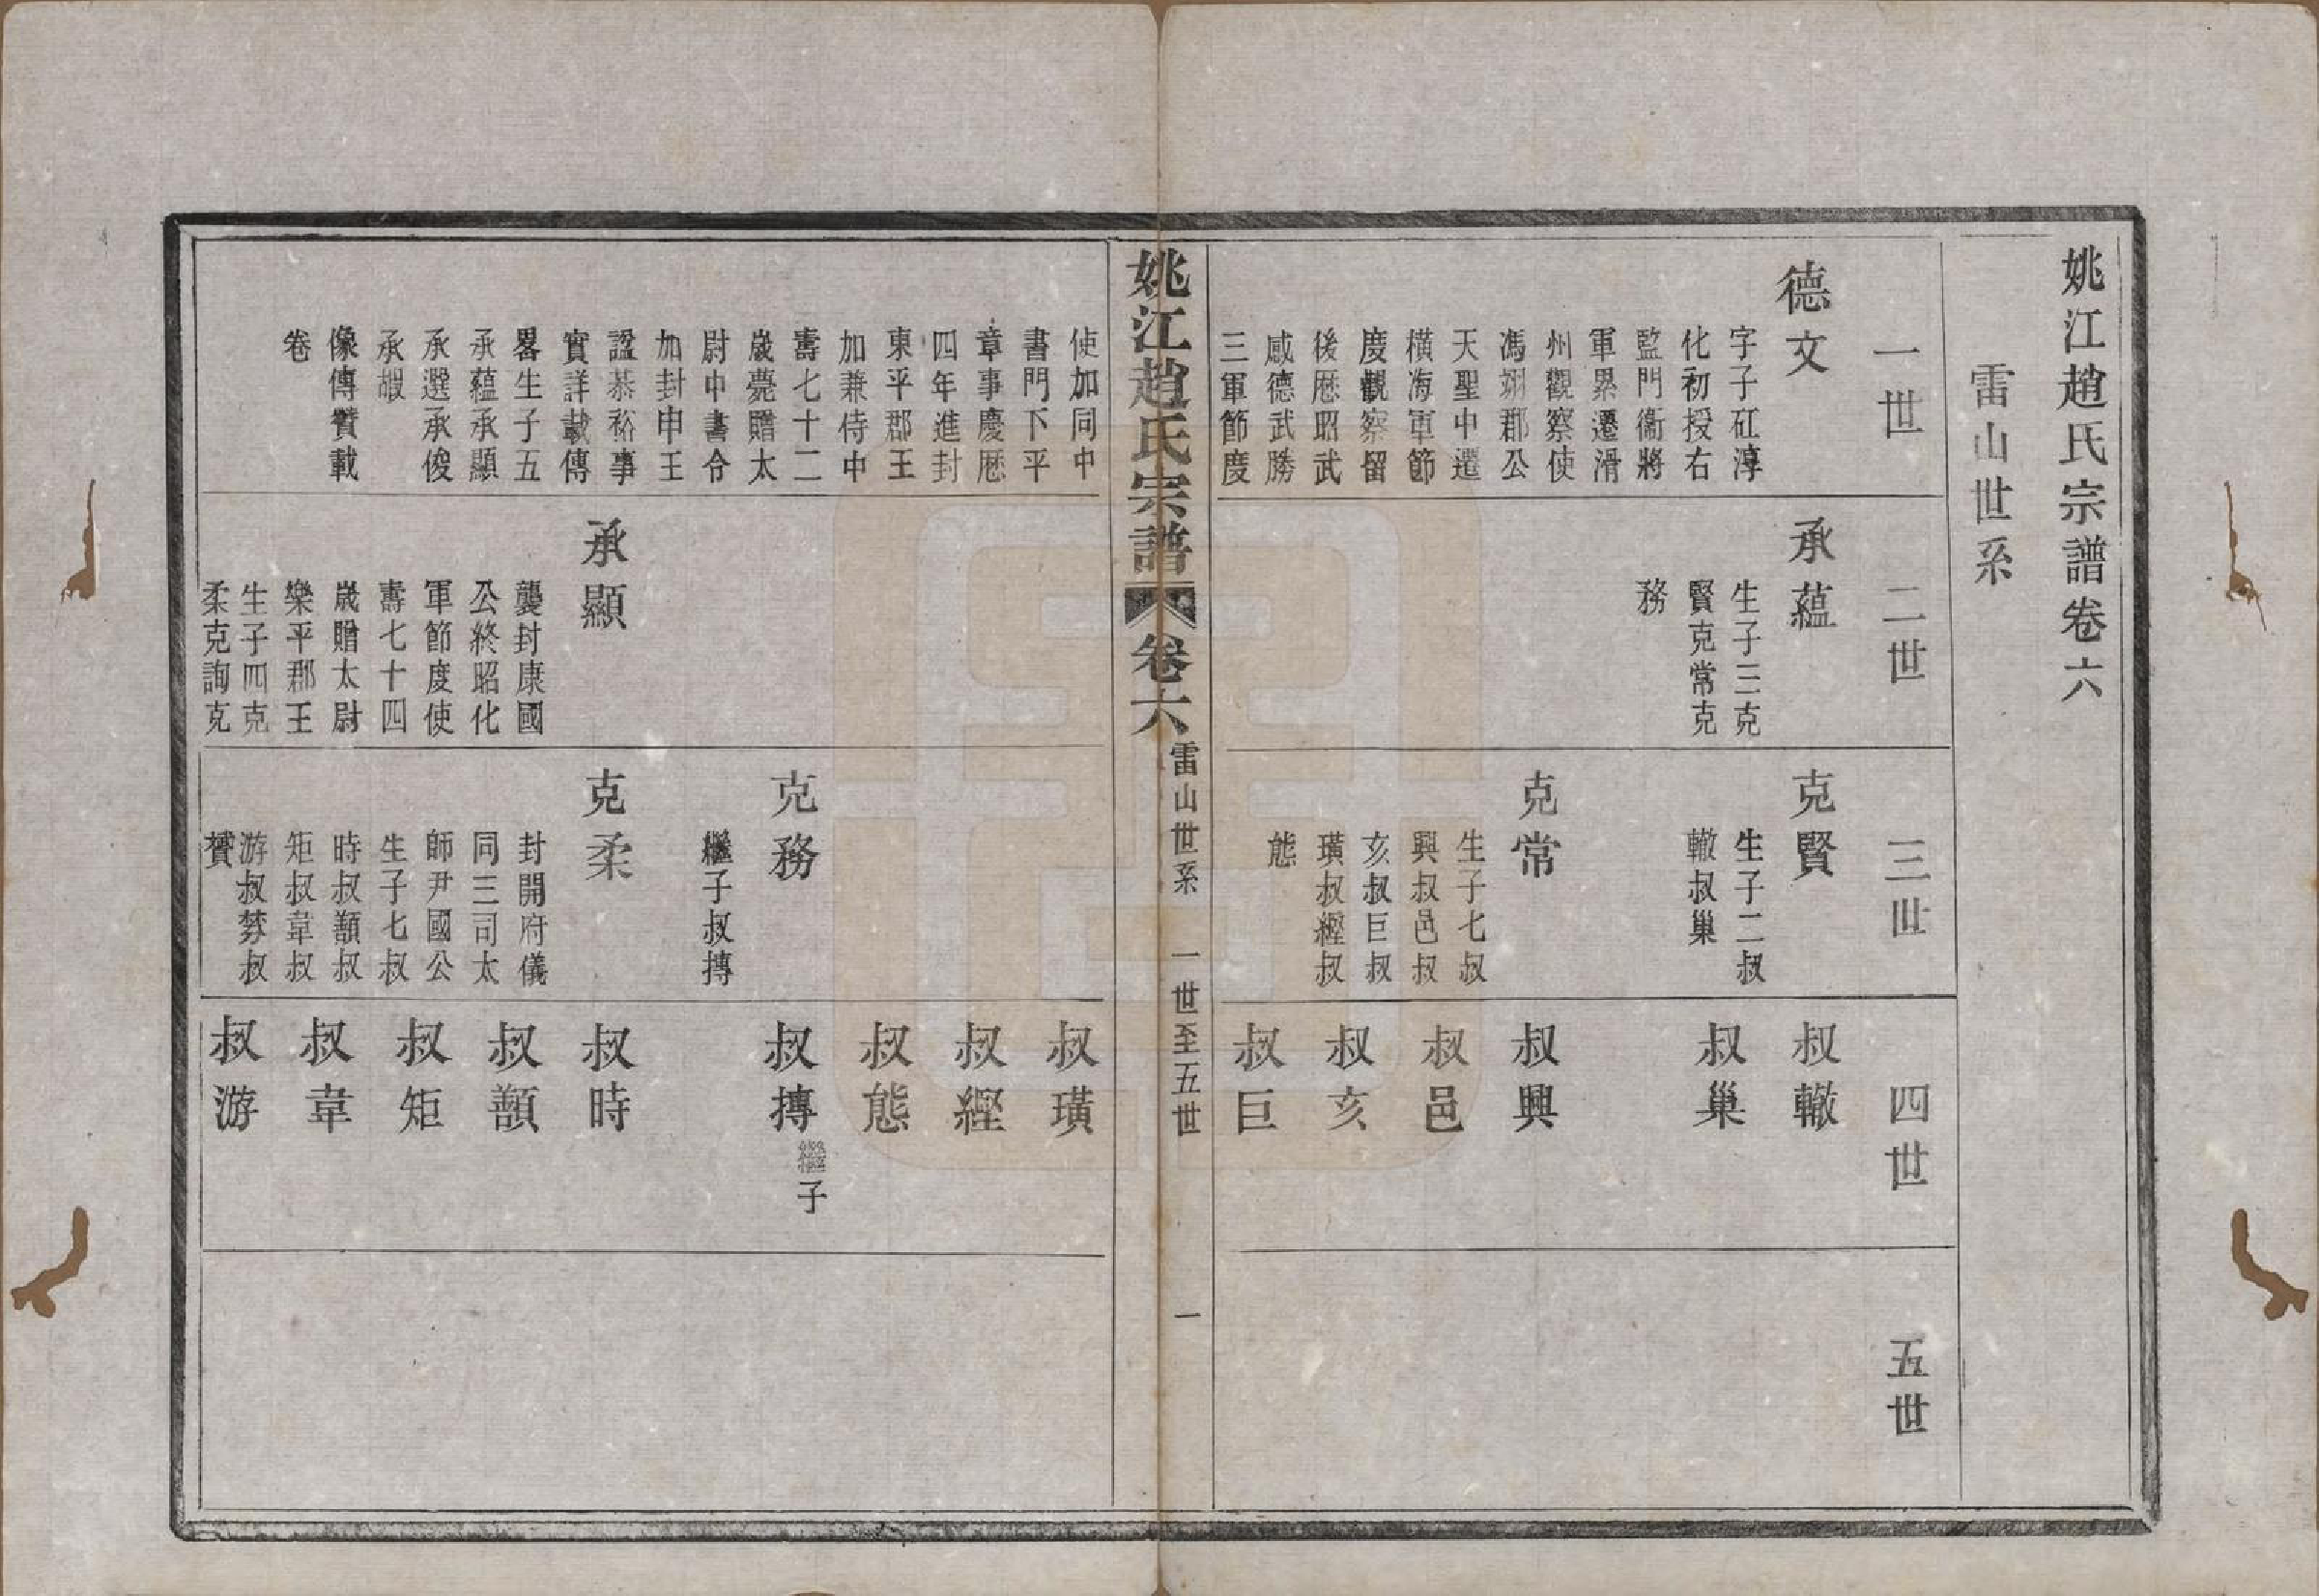 姚江趙氏宗譜卷六
雷山世系
一世
二世
三世
四世
五世
德文
字子矼淳
化初授右
監門衞將
軍累遷滑
州觀察使
馮翊郡公
天聖中遷
橫海軍節
度觀察留
後歴昭武
感德武勝
三軍節度
承蘊
生子三克
賢克常克
務
克賢
生子二叔
轍叔巢
克常
生子七叔
興叔邑叔
亥叔巨叔
璜叔經叔
態
叔轍
叔巢
叔興
叔邑
叔亥
叔巨
姚江趙氏宗譜
卷六
雷山世系 一世至五世
一
使加同中
書門下平
章事慶歴
四年進封
東平郡王
加兼侍中
壽七十二
歲薨贈太
尉中書令
加封申王
諡恭裕事
實詳載傳
畧生子五
承蘊承顯
承選承俊
承嘏
像傳贊載
卷
承顯
襲封康國
公終昭化
軍節度使
壽七十四
歲贈太尉
樂平郡王
生子四克
柔克詢克
克務
繼子叔摶
克柔
封開府儀
同三司太
師尹國公
生子七叔
時叔顥叔
矩叔韋叔
游叔棼叔
贇
叔璜
叔經
叔態
叔摶 繼子
叔時
叔顥
叔矩
叔韋
叔游